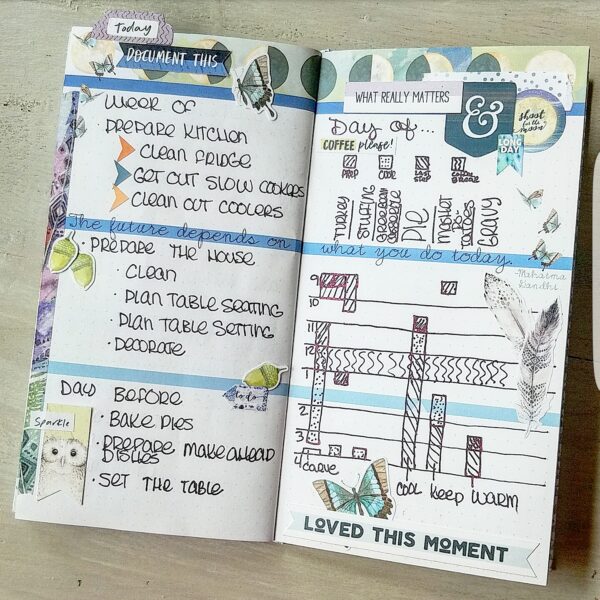 Today
DOCUMENT THIS
WEEK OF
· PREPARE KITCHEN
CLEAN FRIDGE
GET OUT SLOW COOKERS
CLEAN OUT COOLERS
The future depends on
· PREPARE THE HOUSE
· CLEAN
· PLAN TABLE SEATING
· PLAN TABLE SETTING
· DECORATE
to do
DAY BEFORE
Sparkle
· BAKE PIES
· PREPARE MAKE AHEAD
DISHES
· SET THE TABLE
WHAT REALLY MATTERS
&
shoot
for the
moon
DAY OF...
LONG
DAY
COFFEE please!
PREP
COOK
LAST
STEP
COFFEE
BREAK
TURKEY
STUFFING
GREEN BEAN
CASSEROLE
PIE
MASHED
PO-
TATOES
GRAVY
what you do today.
-Mahatma
Gandhi
9
10
11
12
1
2
3
4
CARVE
COOL KEEP WARM
LOVED THIS MOMENT